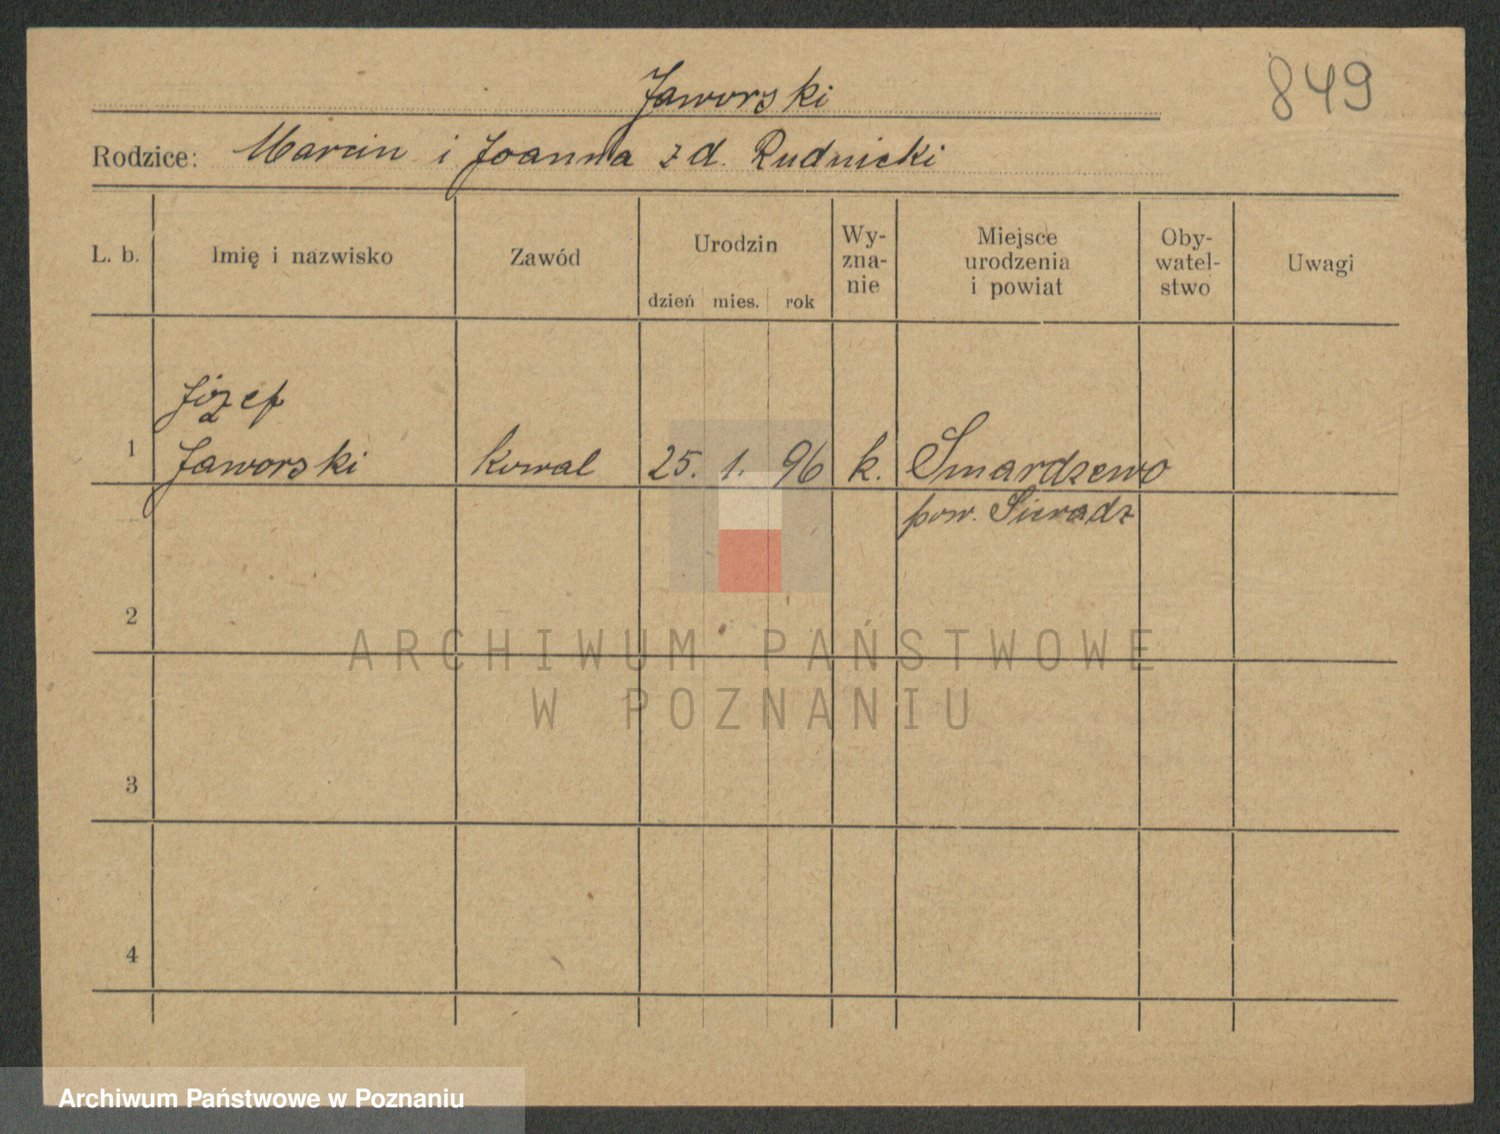 849
Jaworski
Rodzice: Marcin i Joanna z d. Rudnicki
L. b.
Imię i nazwisko
Zawód
Urodzin
dzień mies. rok
Wy-
zna-
nie
Miejsce
urodzenia
i powiat
Oby-
watel-
stwo
Uwagi
Józef
1 Jaworski kowal 25. 1. 96 k. Smardzewo
pow. Sieradz
2
3
4
ARCHIWUM PAŃSTWOWE
W POZNANIU
Archiwum Państwowe w Poznaniu